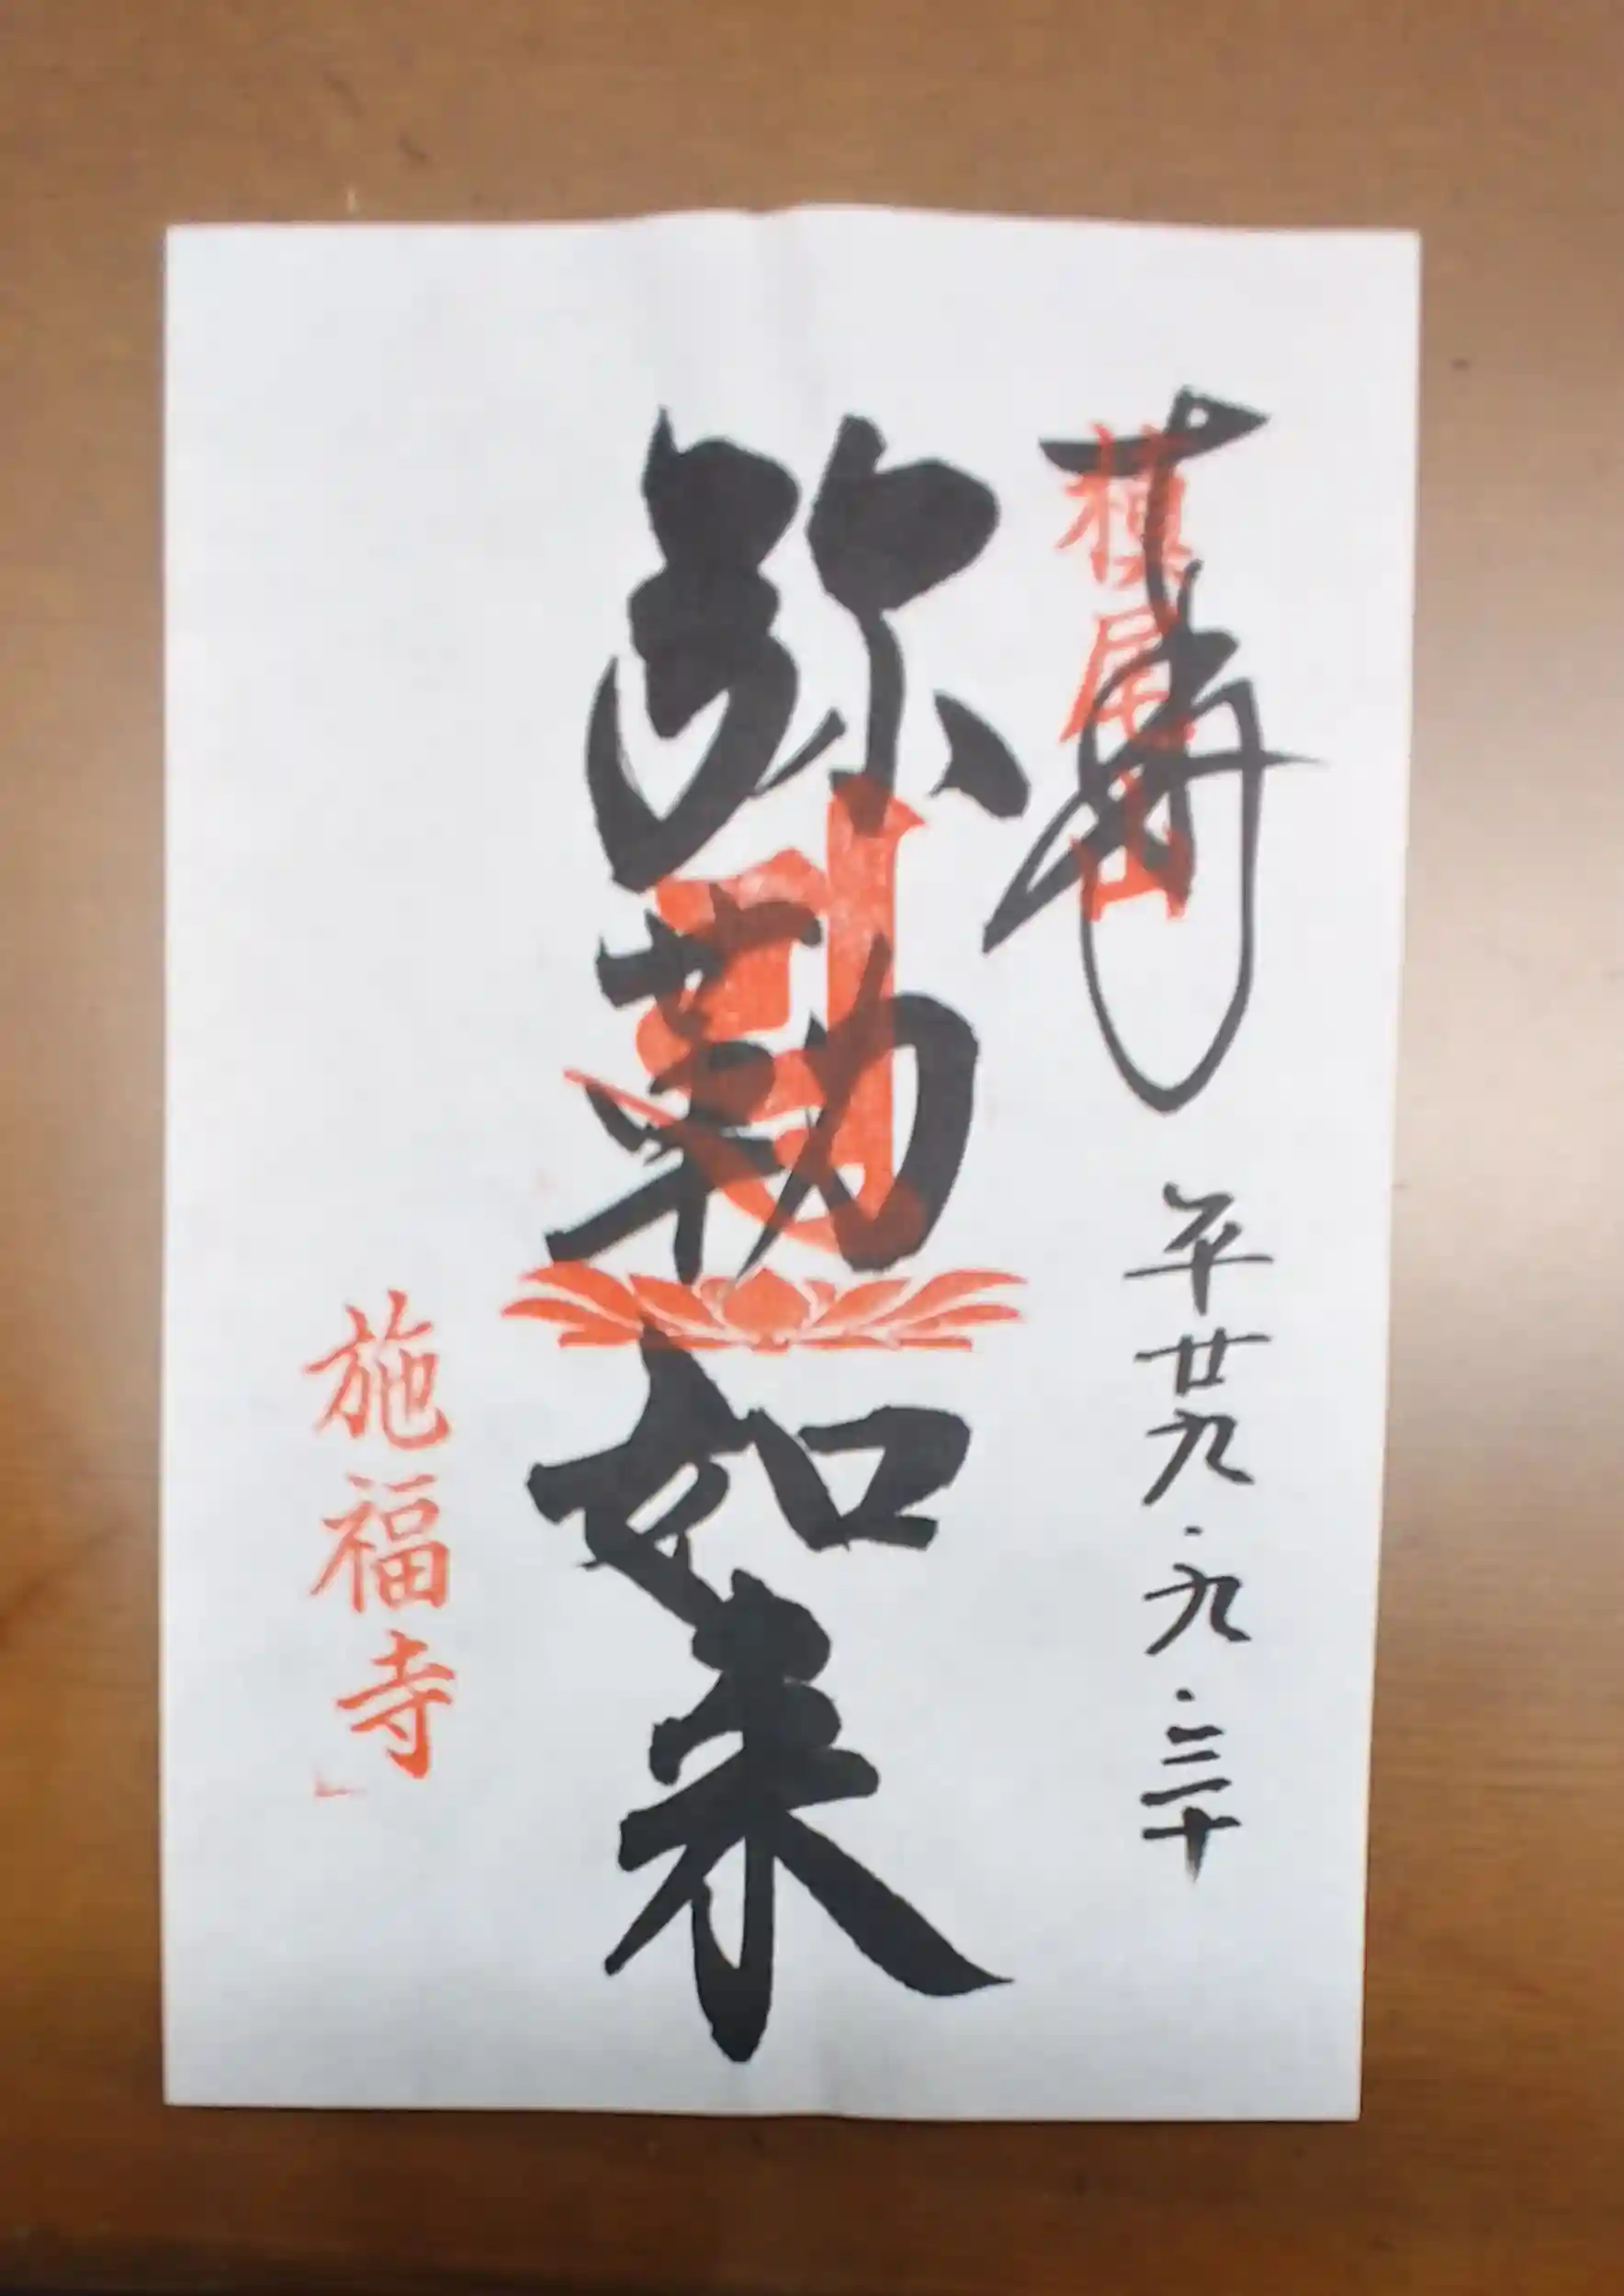 奉拝
槇尾山
平廿九.九.三十
弥勒如来
施福寺